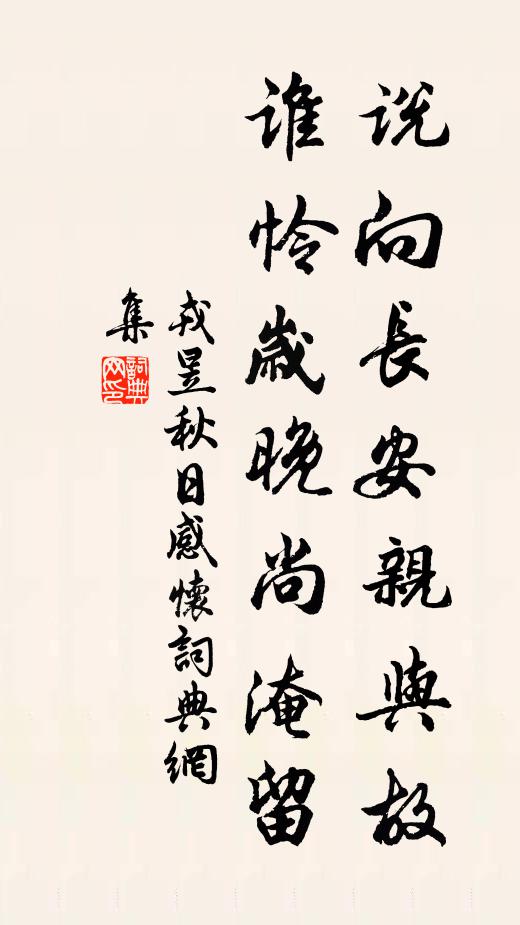 说向長安親與故
谁怜歲晚尚淹留
戎昱秋日感懷詞典網
集
詞典
网印